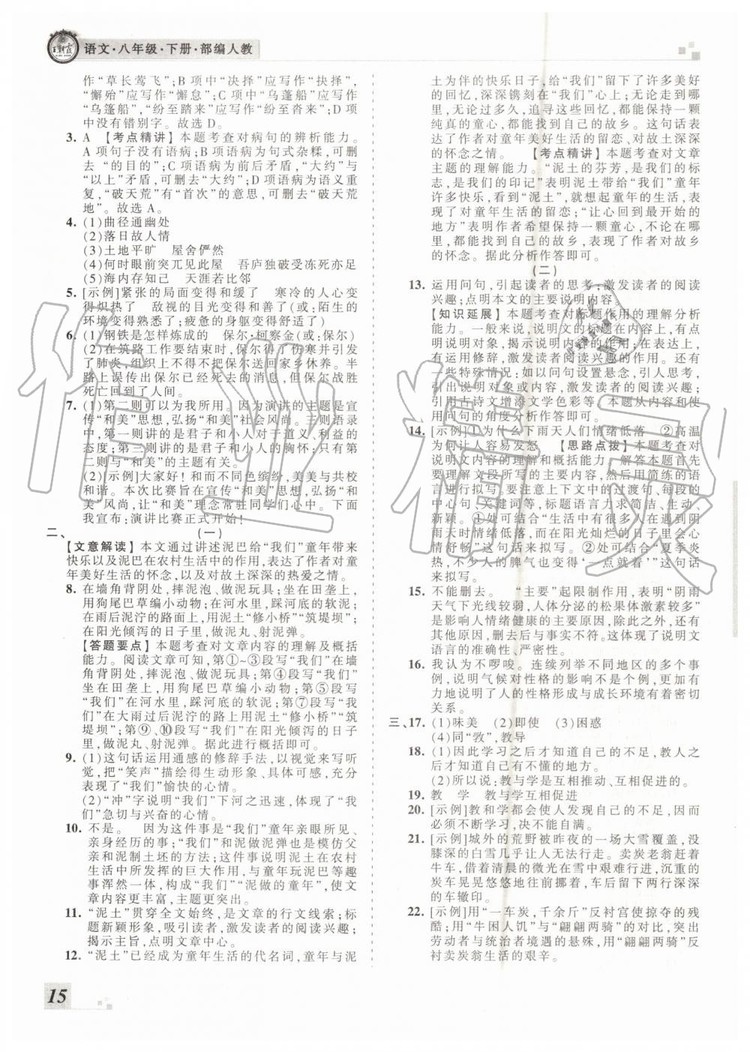 语文·八年级·下册·部编人教
作“草长莺飞”；B项中“决择”应写作“抉择”，
“懈殆”应写作“懈怠”；C项中“乌蓬船”应写作
“乌篷船”，“纷至踏来”应写作“纷至沓来”；D项
中没有错别字。故选D。
3. A 【考点精讲】本题考查对病句的辨析能力。
A项句子没有语病；B项语病为句式杂糅，可删
去“的目的”；C项语病为前后矛盾，“大约”与
“以上”矛盾，可删去“大约”；D项语病为语义重
复，“破天荒”有“首次”的意思，可删去“破天荒
地”。故选A。
4. (1)曲径通幽处
(2)落日故人情
(3)土地平旷 屋舍俨然
(4)何时眼前突兀见此屋 吾庐独破受冻死亦足
(5)海内存知己 天涯若比邻
5. [示例]紧张的局面变得和缓了 寒冷的人心变
得炽热了 敌视的目光变得和善了(或：陌生的
环境变得熟悉了；疲惫的身躯变得舒适了)
6. (1)钢铁是怎样炼成的 保尔·柯察金(或：保尔)
(2)在筑路工作要结束时，保尔得了伤寒并引发
了肺炎，组织上不得不把保尔送回家乡休养。半
路上误传出保尔已经死去的消息，但保尔战胜
死亡回到了人间。
7. (1)第二则可以为我所用。因为演讲的主题是宣
传“和美”思想，弘扬“和美”社会风尚。第一则语录
中，第一则讲的是君子和小人对于道义、利益的
态度；第三则讲的是君子和小人的胸怀；只有第
二则与“和美”的主题有关。
(2)[示例]君子和而不同色缤纷，美美与共校和
和谐。本次比赛旨在宣传“和美”思想，弘扬“和
美”风尚，让“和美”观念常驻同学们心中。下面
我宣布：演讲比赛正式开始！
二、(一)
【文意解读】本文通过讲述泥巴给“我们”童年带来
快乐以及泥巴在农村生活中的作用，表达了作者对童
年美好生活的怀念，以及对故土深深的热爱之情。
8. 在墙角背阴处，摔泥泡、做泥玩具；坐在田垄上，
用狗尾巴草编小动物；在河水里，踩河底的软泥；
在雨后泥泞的路上，用泥土“修小桥”“筑堤坝”；
在阳光倾泻的日子里，做泥丸、射泥弹。
【答题要点】本题考查对文章内容的理解及概括
能力。阅读文章可知，第①~③段写“我们”在墙
角背阴处，摔泥泡、做泥玩具；第④段写“我们”
坐在田垄上，用狗尾巴草编小动物；第⑤段写“我
们”在小河水里，踩河底的软泥；第⑦段写“我
们”在大雨过后泥泞的路上用泥土“修小桥”“筑
堤坝”；第⑨、⑩段写“我们”在阳光倾泻的日子
里，做泥丸、射泥弹。据此进行概括即可。
9. (1)这句话运用通感的修辞手法，以视觉来写听
觉，把“笑声”描绘得生动形象、具体可感，充分表
现了“我们”愉快的心情。
(2)“冲”字说明“我们”下河之迅速，体现了“我
们”急切与兴奋的心情。
10. 不是。 因为这件事是“我们”童年亲眼所见、
亲身经历的事；“我们”和泥做泥弹也是模仿父
亲和泥制土坯的方法；这件事说明泥土在农村
生活中所发挥的巨大作用，与童年玩泥巴等趣
事一体，共同构成“我们”“泥做的童年”，使文
章内容更丰富，主题更突出。
11. “泥土”贯穿全文始终，是文章的行文线索；标
题新颖形象，吸引读者，激发读者的阅读兴趣；
揭示主旨，点明文章中心。
12. “泥土”已经成为童年生活的代名词，童年与泥
土为伴的快乐日子，给“我们”留下了许多美好
的回忆，深深镌刻在“我们”心上；无论走到哪
里，无论过多久，追寻这些回忆，都如保持一颗
纯真的童心，都能找到自己的故乡。这句话表
达了作者对童年美好生活的留恋、对故土深深
的怀念之情。 【考点精讲】本题考查对文章
主题的理解能力。“泥土的芬芳，是我们的标
志，是我们的印记”表明泥土带给“我们”童年
许多快乐，看到“泥土”，就想起童年的生活，表
现了对童年生活的留恋；“让心回到最开始的
地方”表明作者希望保持一颗童心，不论在哪
里，都能找到自己的故乡，表现了作者对故乡
的怀念。据此分析作答即可。
(二)
13. 运用问句，引起读者的思考，引发读者的阅读
兴趣；点明本文的主要说明内容。
【知识延展】本题考查对标题作用的理解分析
能力。一般来说，说明文的标题在内容上，有点
明说明对象、揭示说明内容的作用；在表达上，
有运用修辞，激发读者阅读兴趣的作用。还有
些特殊情况：如以问句设置悬念，引人思考，
引出说明对象或内容，激发读者的阅读兴趣；
引用古诗文增添文学色彩等。本题从内容和使
用问句的角度分析作答即可。
14. [示例]①为什么下雨天人们情绪低落 ②高温
为何让人容易发怒 【思路点拨】本题考查对
说明文内容的理解与概括能力。解答本题首先
要理解文段所写的主要内容，然后用简练的语
言进行拟写。要注意上下文中的过渡句，每段的
中心句、关键词等，标题语言力求简洁、生动、
新颖。①处可结合“生活中有很多人，遇到阴
雨天时情绪低落，而在阳光灿烂的日子里会心
情舒畅”这句话来拟写。②处可结合“夏季炎
热，不少人的脾气也变得‘一点就着’”这句话
来拟写。
15. 不能删去。 “主要”起限制作用，表明“阴雨
天气下光线较弱，人体分泌的松果体激素较多”
是影响人情绪健康的主要原因，除此之外，还有
其他原因，删去后与事实不符。这体现了说明文
语言的准确性、严密性。
16. 我认为不啰唆。 连续列举不同地区的多个事
例，说明气候对性格的影响不是个例，更加有
力地说明了人的性格形成与成长环境有着密切
关系。
三、17. (1)味美 (2)即使 (3)困惑
(4)同“敩”，教导
18. (1)因此学习之后才知道自己的不足，教人之
后才知道自己有不懂的地方。
(2)所以说：教与学是互相推动、互相促进的。
19. 教 学 教与学互相促进
20. [示例]教和学都会使人发现自己的不足，因而
必须不断学习，决不能自满。
21. [示例]城外的荒野被昨夜的一场大雪覆盖，没
膝深的白雪几乎让人无法行走。卖炭老翁赶着
牛车，借着清晨的微光在雪中艰难行进，沉重的
炭车晃晃悠悠地往前挪着，车后留下两行深深
的车辙印。
22. [示例]用“一车炭，千余斤”反衬宫使掠夺的残
酷；用“牛困人饥”与“翩翩两骑”的对比，突出
劳动者与统治者境遇的悬殊，用“翩翩两骑”反
衬卖炭翁生活的艰辛。
15